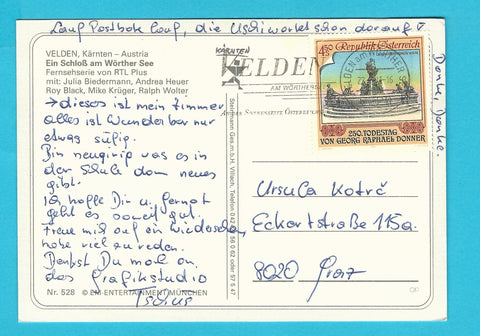 Lauf Postbote lauf, die Uschi wartet schon darauf!
VELDEN, Kärnten – Austria
Ein Schloß am Wörther See
Fernsehserie von RTL Plus
mit: Julia Biedermann, Andrea Heuer
Roy Black, Mike Krüger, Ralph Wolter
→ dieses ist mein Zimmer
alles ist Wunderbar nur
etwas süffig.
Bin neugirig was es in
der Schule denn neues
gibt.
Ich hoffe Dir u. Gernot
geht es soweit gut.
Freue mich auf ein Wiedersehen
habe viel zu reden.
Denkst Du mal an
das Grafikstudio
Nr. 528 © EM-ENTERTAINMENT MÜNCHEN
KÄRNTEN
VELDEN
AM WÖRTHERSEE
450 Republik Österreich
250. TODESTAG
VON GEORG RAPHAEL DONNER
Danke, Danke.
Ursula Kotrč
Eckertstraße 115a
8020 Graz